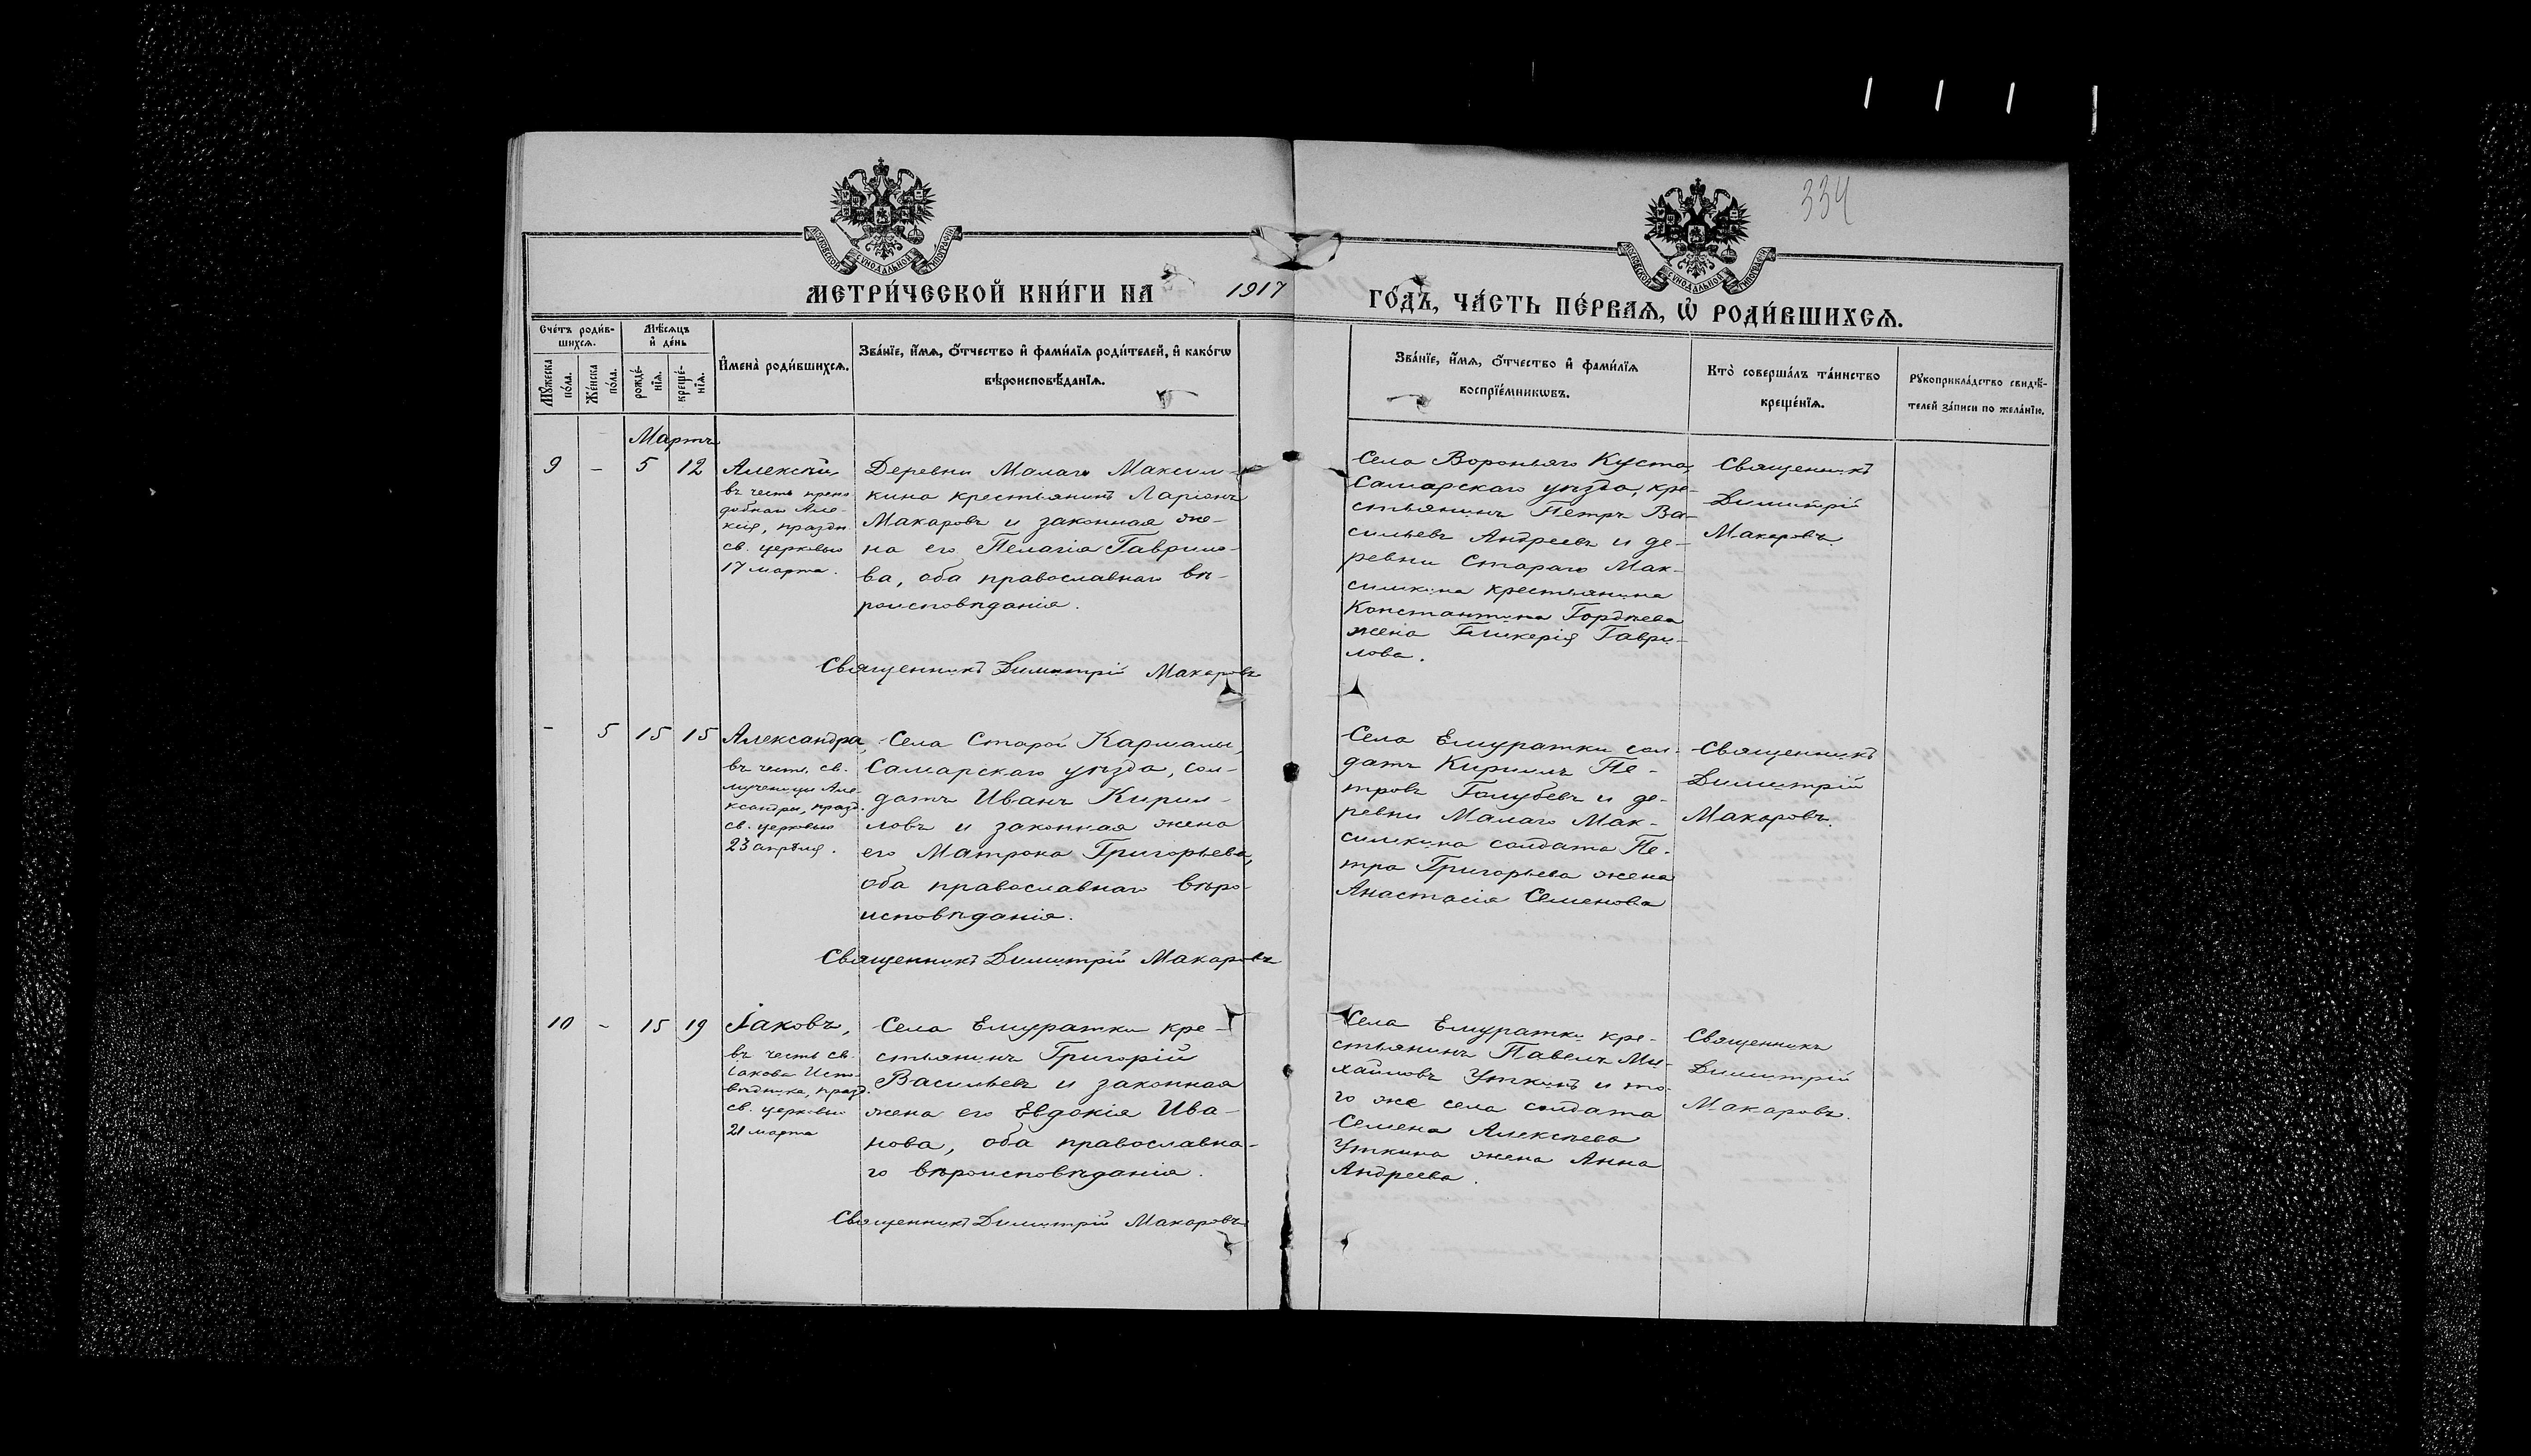 334
МОСКОВСКОЙ СѴНОДАЛЬНОЙ ТИПОГРАФІИ
МОСКОВСКОЙ СѴНОДАЛЬНОЙ ТИПОГРАФІИ
МЕТРИ́ЧЕСКОЙ КНИ́ГИ НА 1917 ГО́ДЪ, ЧА́СТЬ ПЕ́РВАѦ, Ѡ҆ РОДИ́ВШИХСѦ.
Сче́тъ роди́в-
шихсѧ.
Мꙋ́жеска
по́ла.
Же́нска
по́ла.
Мѣ́сѧцъ
и҆ де́нь
рожде́-
нїѧ.
креще́-
нїѧ.
И҆мена̀ роди́вшихсѧ.
Зва́нїе, и҆́мѧ, ѻ҆́тчество и҆ фами́лїѧ роди́телей, и҆ како́гѡ
вѣроисповѣ́данїѧ.
Зва́нїе, и҆́мѧ, ѻ҆́тчество и҆ фами́лїѧ
воспрїе́мникѡвъ.
Кто̀ соверша́лъ та́инство
креще́нїѧ.
Рꙋкоприкла́дство свидѣ́-
телей за́писи по жела́нїю.
Мартъ
9 – 5 12
Алексѣй,
въ честь препо
добнаго Але-
ксія, праздн.
св. церковью
17 марта.
Деревни Малаго Максим-
кина крестьянинъ Ларіонъ
Макаровъ и законная же-
на его Пелагія Гаврило-
ва, оба православнаго вѣ-
роисповѣданія.
Священникъ Димитрій Макаровъ
Села Вороньяго Куста,
Самарскаго уѣзда, кре-
стьянинъ Петръ Ва-
сильевъ Андреевъ и де-
ревни Стараго Мак-
симкина крестьянина
Константина Гордѣева
жена Гликерія Гаври-
лова.
Священникъ
Димитрій
Макаровъ.
– 5 15 15
Александра,
въ честь св.
мученицы Але-
ксандры, празд.
св. церковью
23 апрѣля.
Села Старой Кармалы,
Самарскаго уѣзда, сол-
датъ Иванъ Кирил-
ловъ и законная жена
его Матрона Григорьева,
оба православнаго вѣро-
исповѣданія.
Священникъ Димитрій Макаровъ
Села Емуратки сол-
датъ Кириллъ Пе-
тровъ Голубевъ и де-
ревни Малаго Мак-
симкина солдата Пе-
тра Григорьева жена
Анастасія Семенова
Священникъ
Димитрій
Макаровъ.
10 – 15 19
Іаковъ,
въ честь св.
Іакова Испо-
вѣдника, празд.
св. церковью
21 марта
Села Емуратки кре-
стьянинъ Григорій
Васильевъ и законная
жена его Евдокія Ива-
нова, оба православна-
го вѣроисповѣданія.
Священникъ Димитрій Макаровъ
Села Емуратки кре-
стьянинъ Павелъ Ми-
хайловъ Уткинъ и то-
го же села солдата
Семена Алексѣева
Уткина жена Анна
Андреева.
Священникъ
Димитрій
Макаровъ.